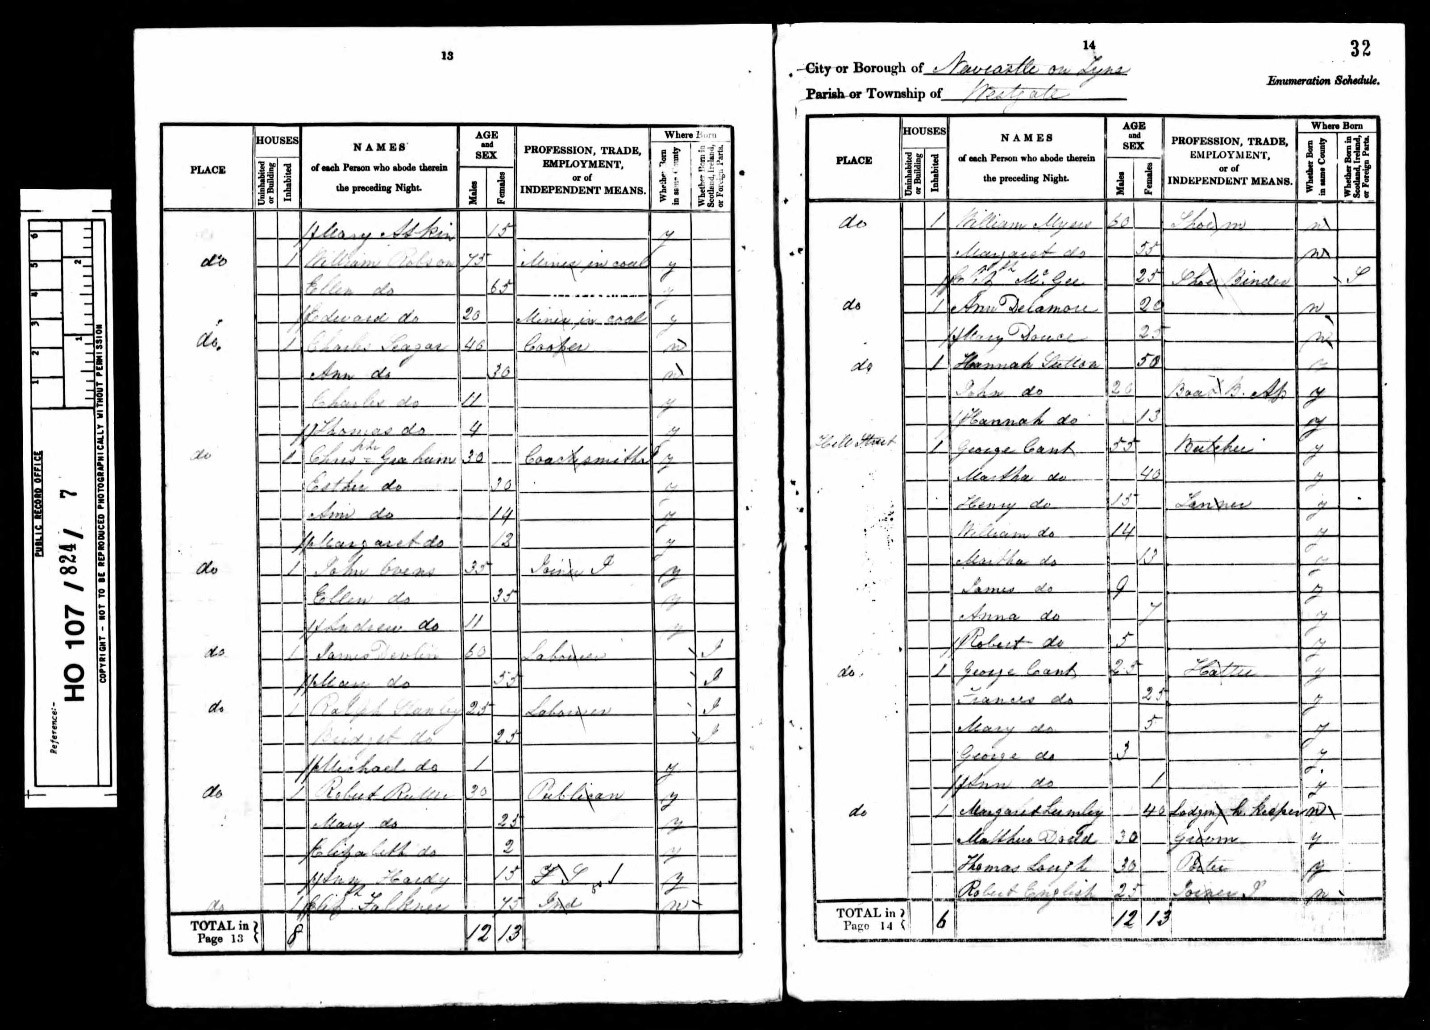 13
PLACE
HOUSES
Uninhabited or Building
Inhabited
NAMES
of each Person who abode therein
the preceding Night.
AGE
and
SEX
Males
Females
PROFESSION, TRADE,
EMPLOYMENT,
or of
INDEPENDENT MEANS.
Where Born
Whether Born in same County
Whether Born in Scotland, Ireland, or Foreign Parts.
Mary Atkin 15 y
do 1 William Robson 75 Miner in coal y
Ellen do 65 y
Edward do 20 Miner in coal y
do 1 Charles Seagar 40 Cooper n
Ann do 30 n
Charles do 11 y
Thomas do 4 y
do 1 Chrisr Graham 30 Coachsmith y
Esther do 30 y
Ann do 14 y
Margaret do 12 y
do 1 John Ovens 35 Joiner J y
Ellen do 35 y
Andrew do 11 y
do 1 James Devlin 60 Labourer I
Mary do 55 I
do 1 Ralph 25 Labourer I
Bridget do 25 I
Michael do 1 y
do 1 Robert 30 Publican y
Mary do 25 y
Elizabeth do 2 y
Ann Hardy 15 F S y
do 1 Falkner 75 Ind n
TOTAL in Page 13 8 12 13
14
32
City or Borough of Newcastle on Tyne
Parish or Township of Westgate
Enumeration Schedule.
PLACE
HOUSES
Uninhabited or Building
Inhabited
NAMES
of each Person who abode therein
the preceding Night.
AGE
and
SEX
Males
Females
PROFESSION, TRADE,
EMPLOYMENT,
or of
INDEPENDENT MEANS.
Where Born
Whether Born in same County
Whether Born in Scotland, Ireland, or Foreign Parts.
do 1 William Myers 60 Shoe m n
Margaret do 55 n
McGee 25 Shoe Binder S
do 1 Ann Delamore 20 n
Mary Douce 25 n
do 1 Hannah Sutton 50
John do 20 B. Ap y
Hannah do 13 y
Hill Street 1 George Cant 55 Butcher y
Martha do 40 y
Henry do 15 Tanner y
William do 14 y
Martha do 13 y
James do 9 y
Anna do 7 y
Robert do 5 y
do 1 George Cant 25 Hatter y
Frances do 25 y
Mary do 5 y
George do 3 y
Ann do 1 y
do 1 Margaret Lumley 40 Lodging h. keeper n
Matthew Dodd 30 Groom y
Thomas Lough 30 Porter y
Robert English 25 Joiner J n
TOTAL in Page 14 6 12 13
PUBLIC RECORD OFFICE
Reference:-
HO 107 / 824 / 7
COPYRIGHT - NOT TO BE REPRODUCED PHOTOGRAPHICALLY WITHOUT PERMISSION
1 2 3 4 5 6
1 2